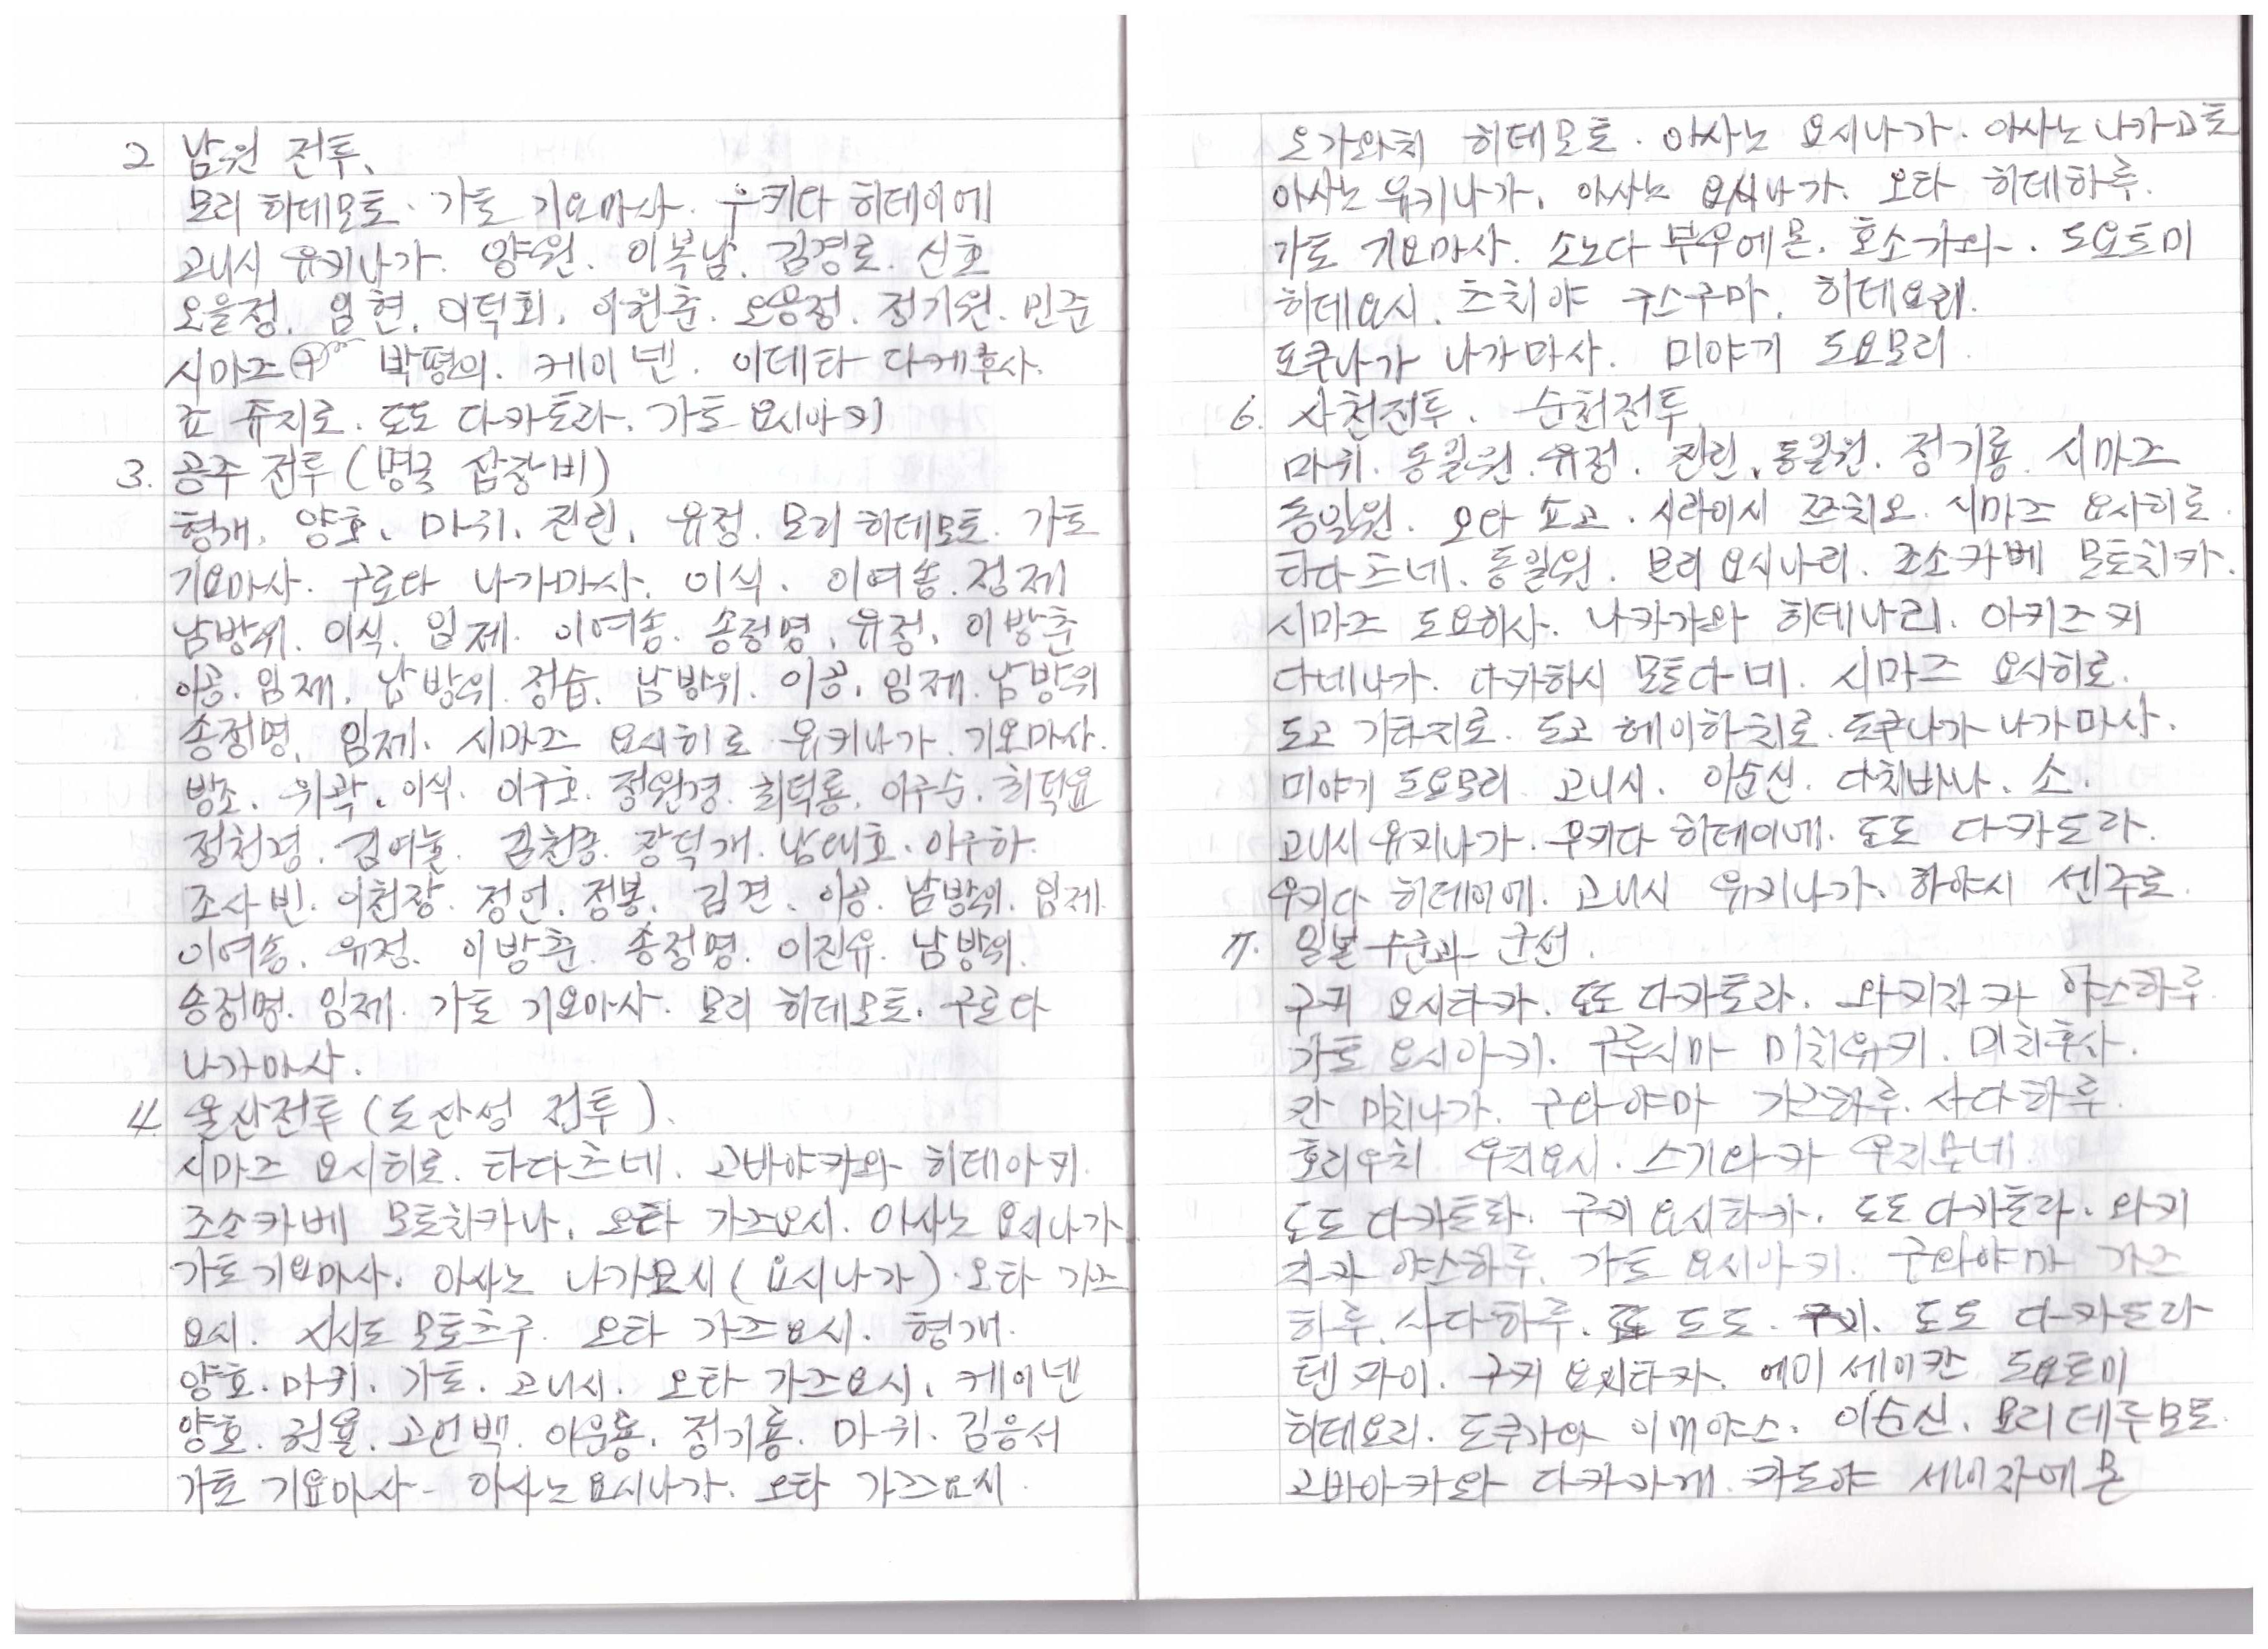 2 남원 전투.
모리 히데모토. 가토 기요마사. 우키타 히데이에
고니시 유키나가. 양원. 이복남. 김경로. 신호
오을정. 임현. 이덕회. 이원춘. 오응정. 정기원. 민준
시마즈 박평의. 케이넨. 이데타 다케후사.
료 쥬지로. 도도 다카토라. 가토 요시아키
3. 공주 전투 (명국 잡장비)
형개. 양호. 마귀. 진린. 유정. 모리 히데모토. 가토
기요마사. 구로다 나가마사. 이식. 이여송. 정제
남방위. 이식. 임제. 이여송. 송정명. 유정. 이방춘
이공. 임제. 남방위. 정습. 남방위. 이공. 임제. 남방위
송정명. 임제. 시마즈 요시히로 유키나가. 기요마사.
방조. 위곽. 이식. 이구호. 정원경. 최덕룡. 이구순. 최덕요
정천경. 김여눌. 김천종. 장덕개. 남대호. 이구하.
조사빈. 이천장. 정언. 정봉. 김견. 이공. 남방위. 임제.
이여송. 유정. 이방춘. 송정명. 이진유. 남방위.
송정명. 임제. 가토 기요마사. 모리 히데모토. 구로다
나가마사.
4. 울산전투 (도산성 전투).
시마즈 요시히로. 타다츠네. 고바야카와 히데아키.
조소카베 모토치카나. 오타 가즈요시. 아사노 요시나가
가토 기요마사. 아사노 나가요시 (요시나가). 오타 가즈
요시. 시시도 모토츠구. 오타 가즈요시. 형개.
양호. 마키. 가토. 고니시. 오타 가즈요시. 케이넨
양호. 권율. 고언백. 이운룡. 정기룡. 마귀. 김응서
가토 기요마사- 아사노 요시나가. 오타 가즈요시.
오가와치 히데모토. 아사노 요시나가. 아사노 나가고토
아사노 유키나가. 아사노 요시나가. 오타 히데하루.
가토 기요마사. 소노다 부우에몬. 호소가와. 도요토미
히데요시. 츠치야 구스구마. 히데요리.
도쿠나가 나가마사. 미야기 도요모리.
6. 사천전투. 순천전투
마귀. 동일원. 유정. 진린. 동일원. 정기룡. 시마즈
동일원. 오타 쇼고. 시라이시 쯔치오. 시마즈 요시히로.
타다츠네. 동일원. 모리 요시나리. 조소카베 모토치카.
시마즈 도요히사. 나카가와 히데나리. 아키즈키
다네나가. 다카하시 모토다네. 시마즈 요시히로.
도고 기타지로. 도고 헤이하치로. 도쿠나가 나가마사.
미야기 도요모리 고니시. 이순신. 다치바나. 소.
고니시 유키나가. 우키다 히데이에. 도도 다카도라.
우키다 히데이에. 고니시 유키나가. 하야시 센주로.
7. 일본 수군과 군선.
구키 요시타카. 도도 다카토라. 와키자카 야스하루.
가토 요시아키. 구루시마 미치유키. 미치후사.
칸 마치나가. 구와야마 가즈하루. 사다하루.
호리우치 우지요시. 스기와카 우지무네.
도도 다카토라. 구키 요시타카. 도도 다카토라. 와키
자카 야스하루. 가토 요시아키. 구와야마 가즈
하루. 사다하루. 도도. 구키. 도도 다카도라
텐 자이. 구키 요시타카. 에미 세이칸 도요토미
히데요리. 도쿠가와 이에야스. 이순신. 모리 데루모토.
고바야카와 다카카게. 카도야 세비자에몬